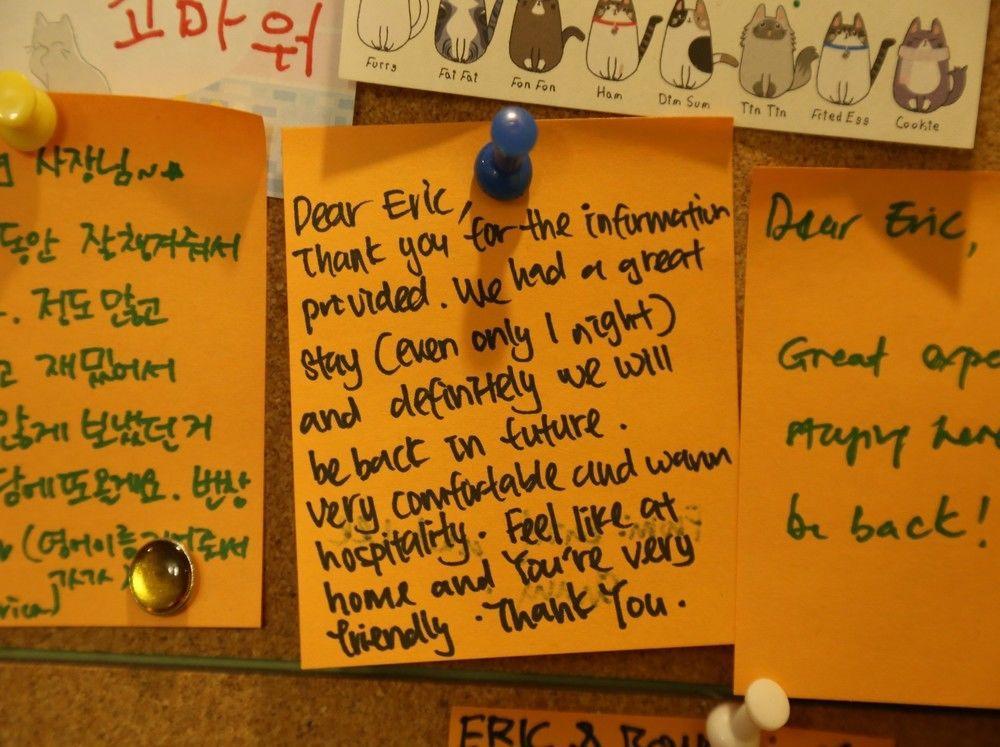 고마워
Furry Fat Fat Fon Fon Ham Dim Sum Tin Tin Fried Egg Cookie
사장님~☆
동안 잘챙겨줘서
. 저도 많고
고 재밌어서
않게 보냈던거
담에또올게요. 번창
(영어이름
Dear Eric,
Thank you for the information
provided. We had a great
stay (even only 1 night)
and definitely we will
be back in future.
very comfortable and warm
hospitality. Feel like at
home and You're very
friendly. Thank You.
Dear Eric,
Great expe
staying here
be back!
ERIC &